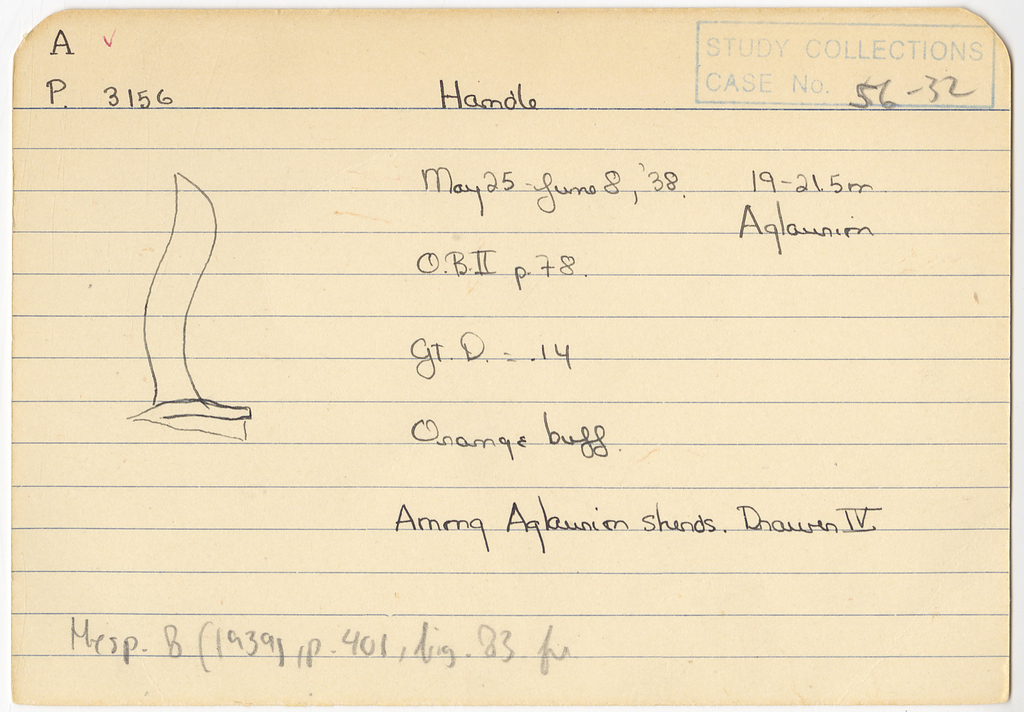 A ✓
STUDY COLLECTIONS
CASE No. 56-32
P. 3156 Handle
May 25 - June 8, '38. 19-21.5m
Aglaurion
O.B.II p. 78.
Gt. D. = .14
Orange buff.
Among Aglaurion sherds. Drawer IV.
Hesp. 8 (1939), p. 401, fig. 83